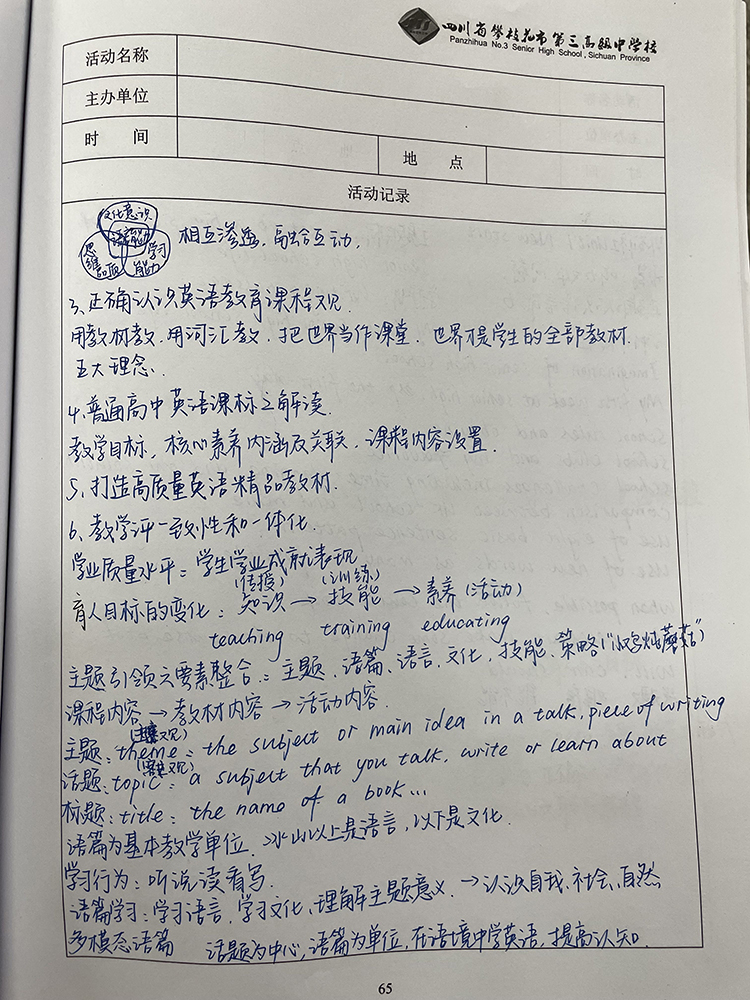 四川省攀枝花市第三高级中学校
Panzhihua No.3 Senior High School, Sichuan Province
活动名称
主办单位
时 间
地 点
活动记录
文化意识
语言能力
思维品质
学习能力
相互渗透,融合互动.
3、正确认识英语教育课程观.
用教材教.用词汇教.把世界当作课堂.世界才是学生的全部教材.
五大理念.
4、普通高中英语课标之解读.
教学目标,核心素养内涵及关联,课程内容设置.
5、打造高质量英语精品教材.
6、教学评一致性和一体化.
学业质量水平:学生学业成就表现
(传授) (训练)
育人目标的变化:知识→技能→素养(活动)
teaching training educating
主题引领六要素整合:主题、语篇、语言、文化、技能、策略("小鸡炖蘑菇")
课程内容→教材内容→活动内容.
(主观)
主题:theme:the subject or main idea in a talk, piece of writing
(客观)
话题:topic:a subject that you talk, write or learn about
标题:title:the name of a book...
语篇为基本教学单位.冰山以上是语言,以下是文化.
学习行为:听说读看写.
语篇学习:学习语言,学习文化,理解主题意义.→认识自我、社会、自然
多模态语篇 话题为中心,语篇为单位,在语境中学英语,提高认知.
65